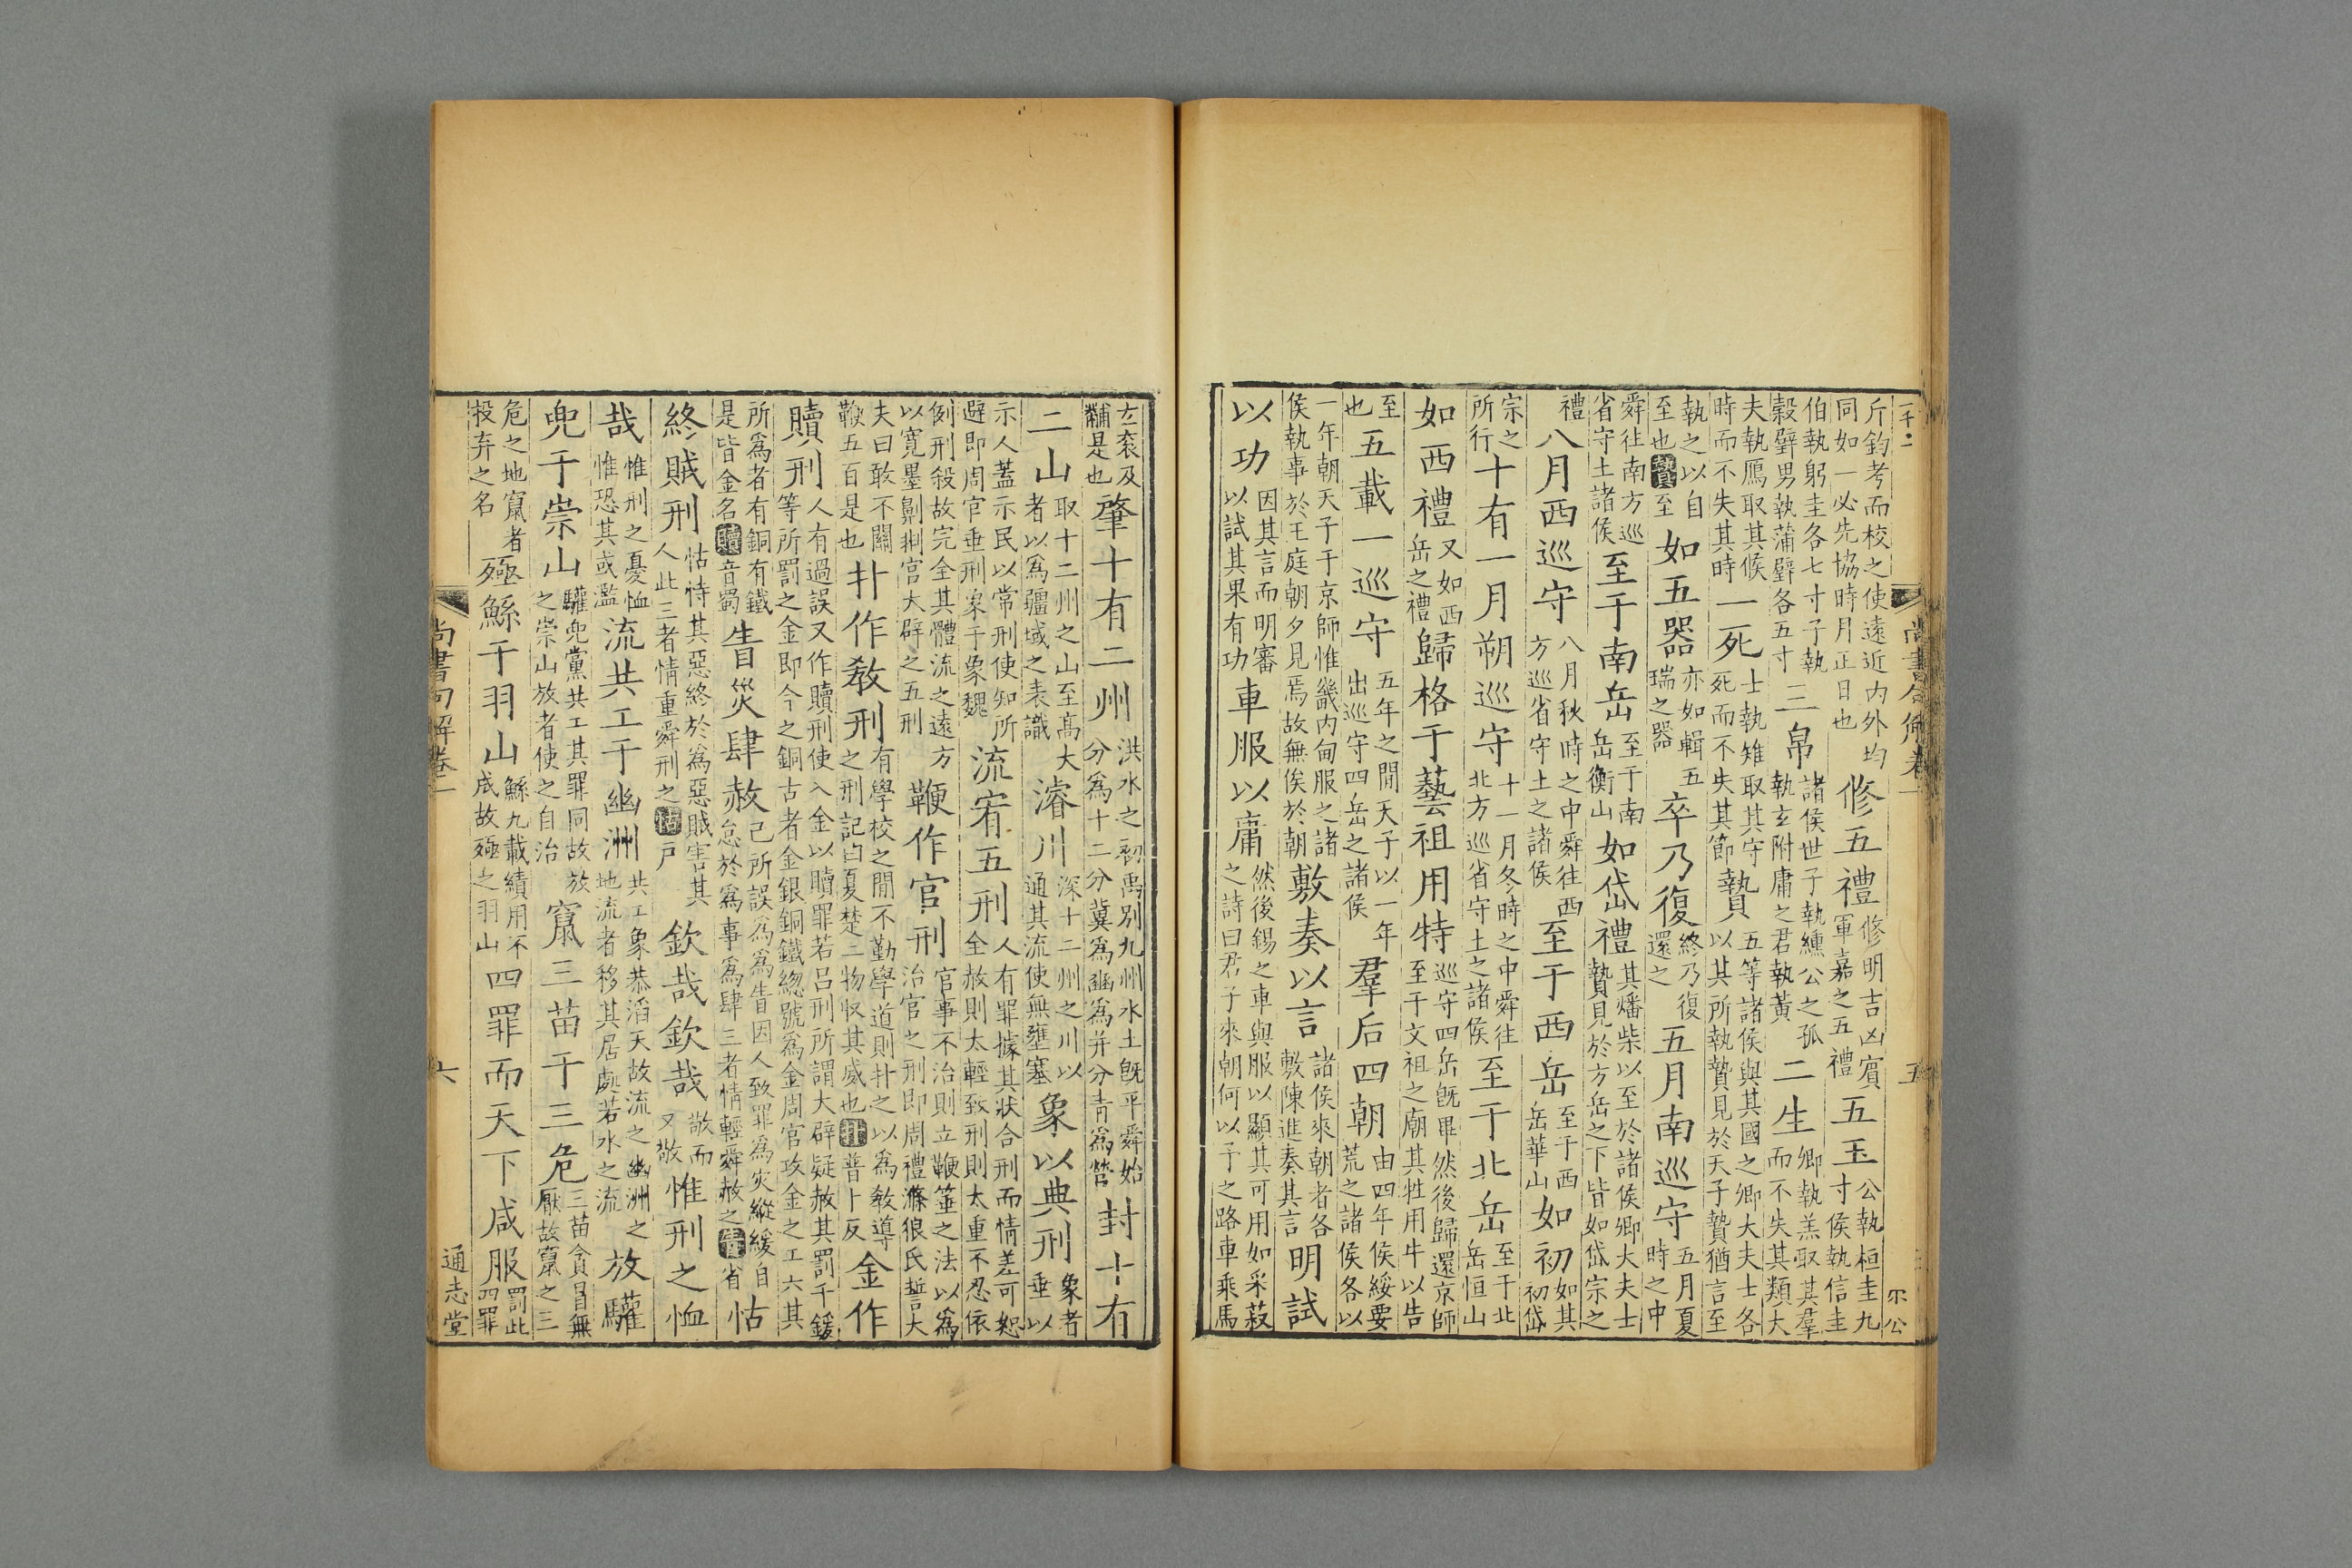 尚書句解卷一
五
斤鈞考而校之使遠近内外均同如一必先協時月正日也修五禮修明吉凶賓軍嘉之五禮五玉公執桓圭九寸侯執信圭
伯執躬圭各七寸子執穀璧男執蒲璧各五寸三帛諸侯世子執纁公之孤執玄附庸之君執黃二生卿執羔取其羣而不失其類大
夫執鴈取其候時而不失其時一死士執雉取其守死而不失其節贄五等諸侯與其國之卿大夫士各以其所執贄見於天子贄猶言至
執之以自至也贄至如五器亦如輯五瑞之器卒乃復終乃復還之五月南巡守五月夏時之中
舜往南方巡省守土諸侯至于南岳至于南岳衡山如岱禮其燔柴以至於諸侯卿大夫士贄見於方岳之下皆如岱宗之
禮八月西巡守八月秋時之中舜往西方巡省守土之諸侯至于西岳至于西岳華山如初如其初岱
宗之所行十有一月朔巡守十一月冬時之中舜往北方巡省守土之諸侯至于北岳至于北岳恒山
如西禮又如西岳之禮歸格于藝祖用特巡守四岳旣畢然後歸還京師至于文祖之廟其牲用牛以告
至也五載一巡守五年之間天子以一年出巡守四岳之諸侯羣后四朝由四年侯綏要荒之諸侯各以
一年朝天子于京師惟畿内甸服之諸侯執事於王庭朝夕見焉故無俟於朝敷奏以言諸侯來朝者各敷陳進奏其言明試
以功因其言而明審以試其果有功車服以庸然後錫之車與服以顯其可用如采菽之詩曰君子來朝何以予之路車乘馬
玄衮及黼是也肇十有二州洪水之初禹別九州水土旣平舜始分爲十二分冀爲幽爲并分青爲營封十有
二山取十二州之山至高大者以爲疆域之表識濬川深十二州之川以通其流使無壅塞象以典刑象者垂以
示人蓋示民以常刑使知所避即周官垂刑象于象魏流宥五刑人有罪據其狀合刑而情差可恕全赦則太輕致刑則太重不忍依
例刑殺故完全其體流之遠方以寬墨劓剕宮大辟之五刑鞭作官刑官事不治則立鞭箠之法以爲治官之刑即周禮滌狼氏誓大
夫曰敢不關鞭五百是也扑作敎刑有學校之間不勤學道則扑之以爲敎導之刑記曰夏楚二物收其威也扑普卜反金作
贖刑人有過誤又作贖刑使入金以贖罪若呂刑所謂大辟疑赦其罰千鍰等所罰之金即今之銅古者金銀銅鐵總號爲金周官攻金之工六其
所爲者有銅有鐵是皆金名贖音蜀眚災肆赦己所誤爲爲眚因人致罪爲灾縱緩自怠於爲事爲肆三者情輕舜赦之眚省怙
終賊刑怙恃其惡終於爲惡賊害其人此三者情重舜刑之怙戸欽哉欽哉敬而又敬惟刑之恤
哉惟刑之憂恤惟恐其或濫流共工于幽洲共工象恭滔天故流之幽洲之地流者移其居處若水之流放驩
兜于崇山驩兜黨共工其罪同故放之崇山放者使之自治竄三苗于三危三苗貪冒無厭故竄之三
危之地竄者投弃之名殛鯀于羽山鯀九載績用不成故殛之羽山四罪而天下咸服罰此四罪
尚書句解卷一
六
通志堂